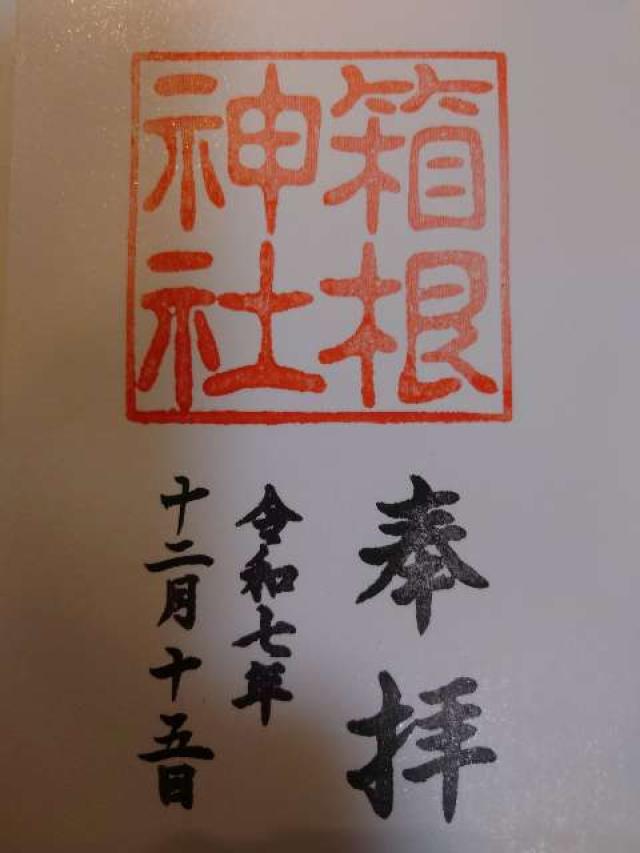 箱根
神社
奉拝
令和七年
十二月十五日